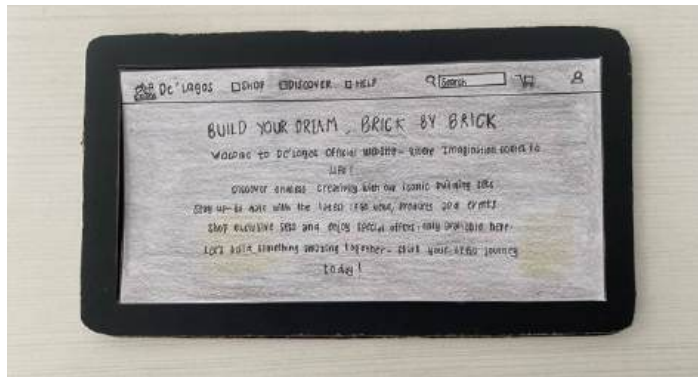 De'Lagos SHOP DISCOVER HELP Search
BUILD YOUR DREAM, BRICK BY BRICK
Welcome to De'Lagos Official Website - where Imagination comes to
LIFE!
Discover endless creativity with our iconic building sets
Stay up-to date with the latest news, products and events
Shop exclusive sets and enjoy special offers only available here.
Let's build something amazing together - start your journey
today!